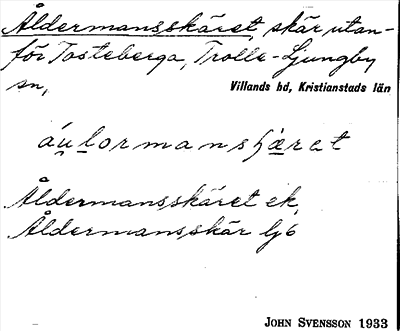 Åldermansskäret, skär utan-
för Tosteberga, Trolle-Ljungby
sn, Villands hd, Kristianstads län
áu̯lormansʃæ̀rat
Åldermansskäret ek
Åldermansskär lj6
JOHN SVENSSON 1933